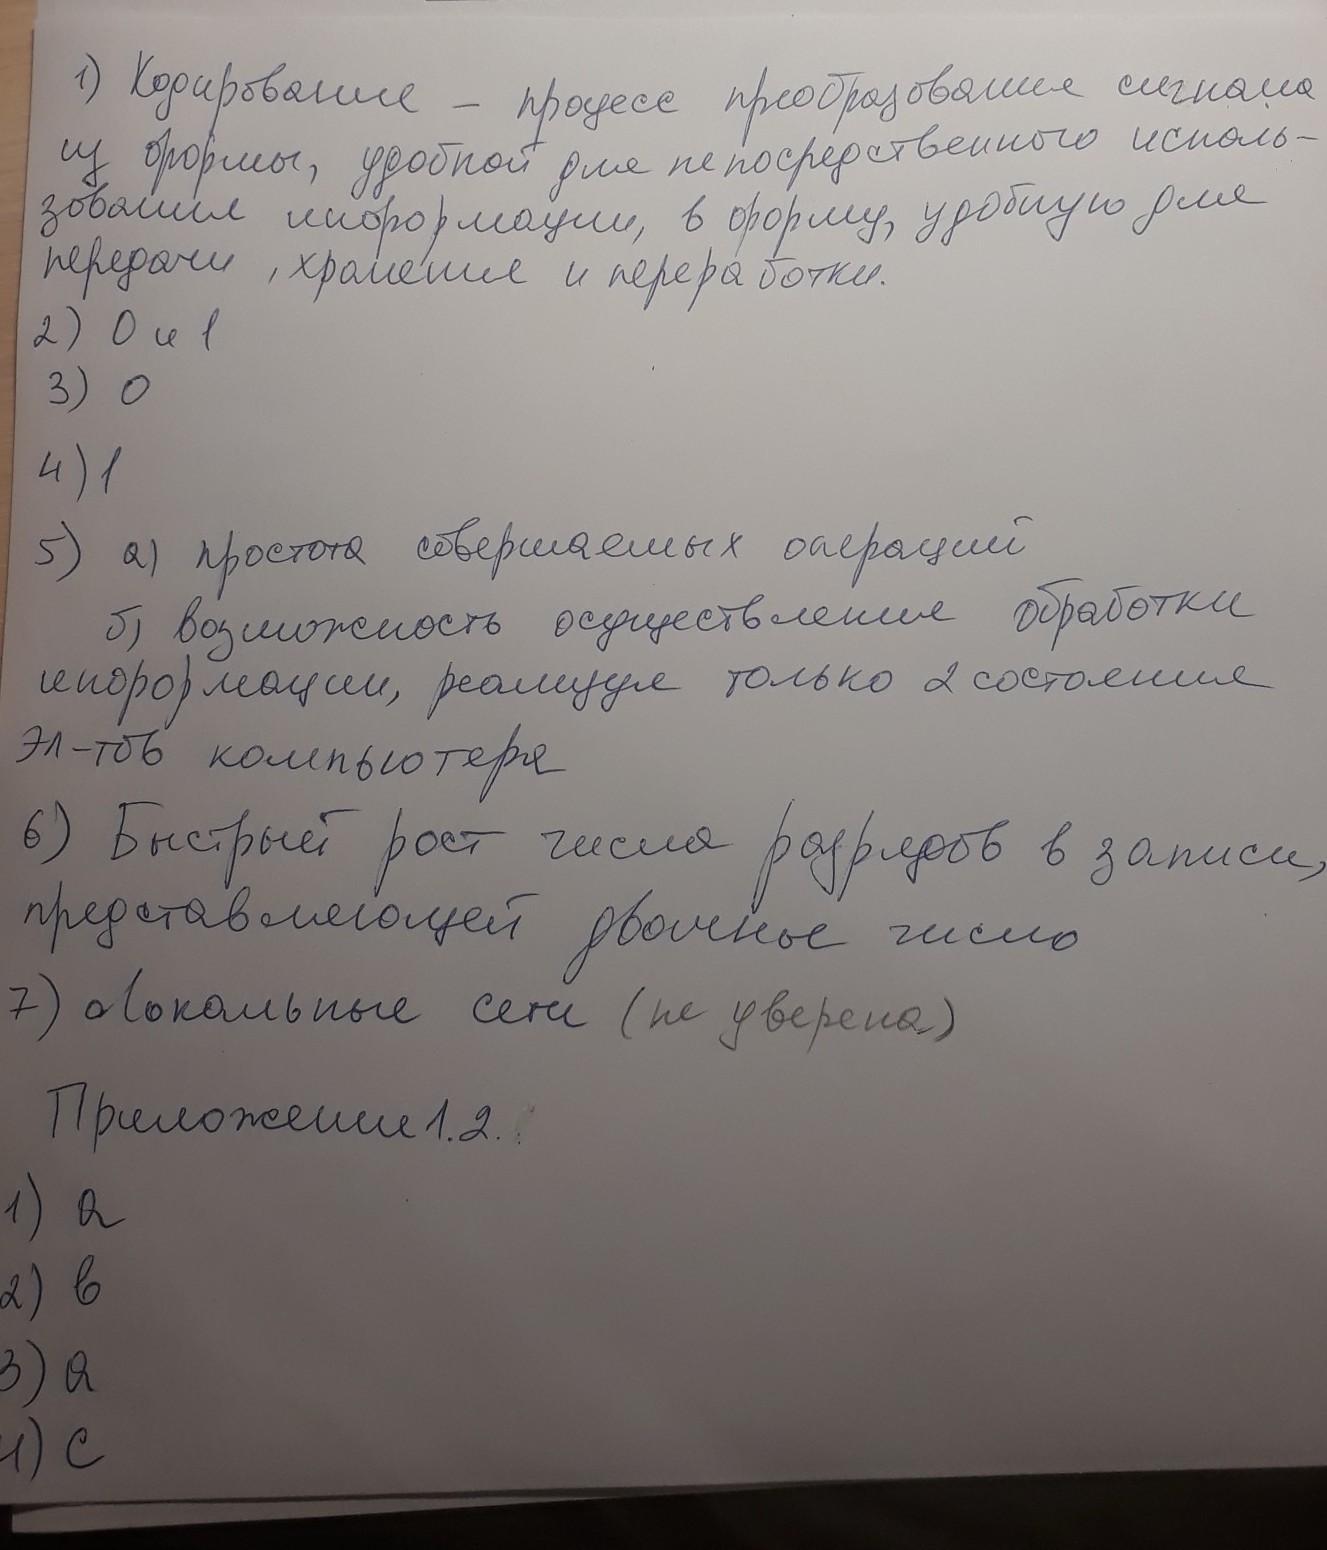 1) Кодирование – процесс преобразования сигнала
из формы, удобной для непосредственного исполь-
зования информации, в форму, удобную для
передачи, хранения и переработки.
2) 0 и 1
3) 0
4) 1
5) а) простота совершаемых операций
б) возможность осуществления обработки
информации, реализуя только 2 состояния
эл-тов компьютера
6) Быстрый рост числа разрядов в записи,
представляющей двоичное число
7) Локальные сети (не уверена)
Приложение 1.2.
1) а
2) в
3) а
4) с